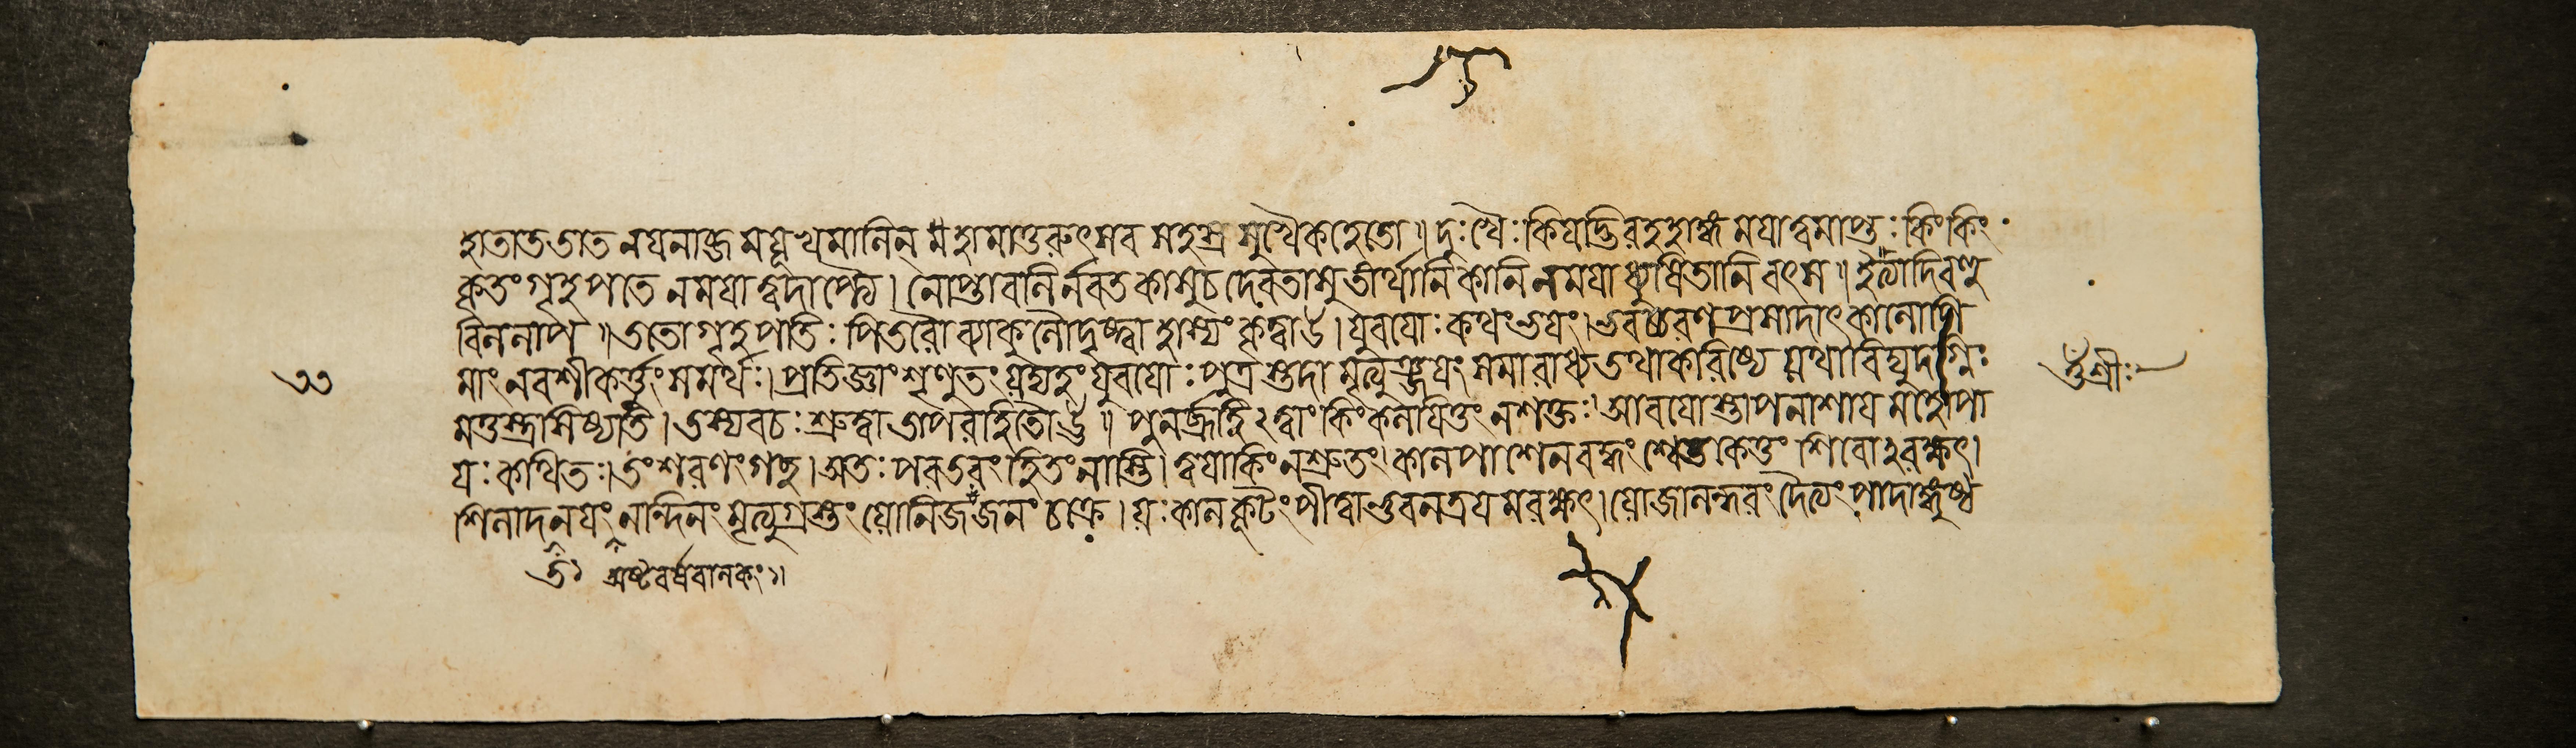 হা তাত তাত নয়নাব্জময়ূখমালিন্ মহামাতুরুৎসব মহাসুখৈকহেতো ॥ দুঃখৈঃ কিয়দ্ভিরহহাঙ্গ ময়া ত্বমাপ্তঃ কিং কিং
কৃতং গৃহপতে ন ময়া ত্বদাপ্ত্যৈ । নোপ্তা বলির্ন বত কাসু চ দেবতাসু তীর্থানি কানি ন ময়াধ্যুষিতানি বৎস ॥ ইত্যাদি বহু
বিললাপ ॥ ততো গৃহপতিঃ পিতরৌ ব্যাকুলৌ দৃষ্ট্বা হাস্যং কৃত্বাহ । যুবয়োঃ কথং ভয়ং । ভবচ্চরণপ্রসাদাৎ কালোপি
মাং ন বশীকর্ত্তুং সমর্থঃ । প্রতিজ্ঞাং শৃণুতং যদ্যহং যুবয়োঃ পুত্রস্তদা মৃত্যুঞ্জয়ং সমারাধ্য তথা করিষ্যে যথা বিদ্যুদগ্নিঃ
শ্রীঃ
মত্তস্ত্রসিষ্যতি । তস্য বচঃ শ্রুত্বা তাপরহিতৌ ॥ পুনর্ব্রূহি ২ ত্বাং কিং কলয়িতুং ন শক্তঃ । আবয়োস্তাপনাশায় মহোপা
য়ঃ কথিতঃ । তং শরণং গচ্ছ । অতঃ পরতরং হিতং নাস্তি । ত্বয়া কিং ন শ্রুতং । কালপাশেন বদ্ধং শ্বেতকেতুং শিবোঽরক্ষৎ ।
শিলাদতনয়ং নন্দিনং মৃত্যুগ্রস্তং যো নিজজনং চক্রে । যঃ কালকূটং পীত্বা ভুবনত্রয়মরক্ষৎ । যো জালন্ধরং দৈত্যং পাদাঙ্গুষ্ঠ
অষ্টবর্ষবালকং ॥